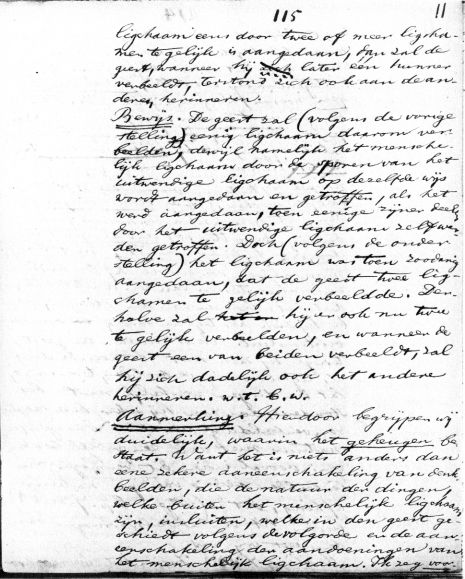 115 11
ligchaam eens door twee of meer ligcha-
men te gelijk is aangedaan, dan zal de
geest, wanneer hij zich later een hunner
verbeeldt, terstond zich ook aan de an-
dere, herinneren.
Bewijs. De geest zal (volgens de vorige
stelling) eenig ligchaam daarom ver-
beelden, dewijl namelijk het mensche-
lijk ligchaam door de sporen van het
uitwendige ligchaam op dezelfde wijs
wordt aangedaan en getroffen, als het
werd aangedaan, toen eenige zijner deelen
door het uitwendige ligchaam zelf wer-
den getroffen. Doch (volgens de onder
stelling) het ligchaam was toen zoodanig
aangedaan, dat de geest twee lig-
chamen te gelijk verbeeldde. Der-
halve zal hij er ook nu twee
te gelijk verbeelden, en wanneer de
geest een van beiden verbeeldt, zal
hij zich dadelijk ook het andere
herinneren. w. t. b. w.
Aanmerking. Hierdoor begrijpen wij
duidelijk, waarin het geheugen be
staat. Want het is niets anders dan
eene zekere aaneenschakeling van denk
beelden, die de natuur der dingen,
welke buiten het menschelijk ligchaam
zijn, insluiten, welke in den geest ge-
schiedt volgens de volgorde en de aan-
eenschakeling der aandoeningen van
het menschelijk ligchaam. Ik zeg voor